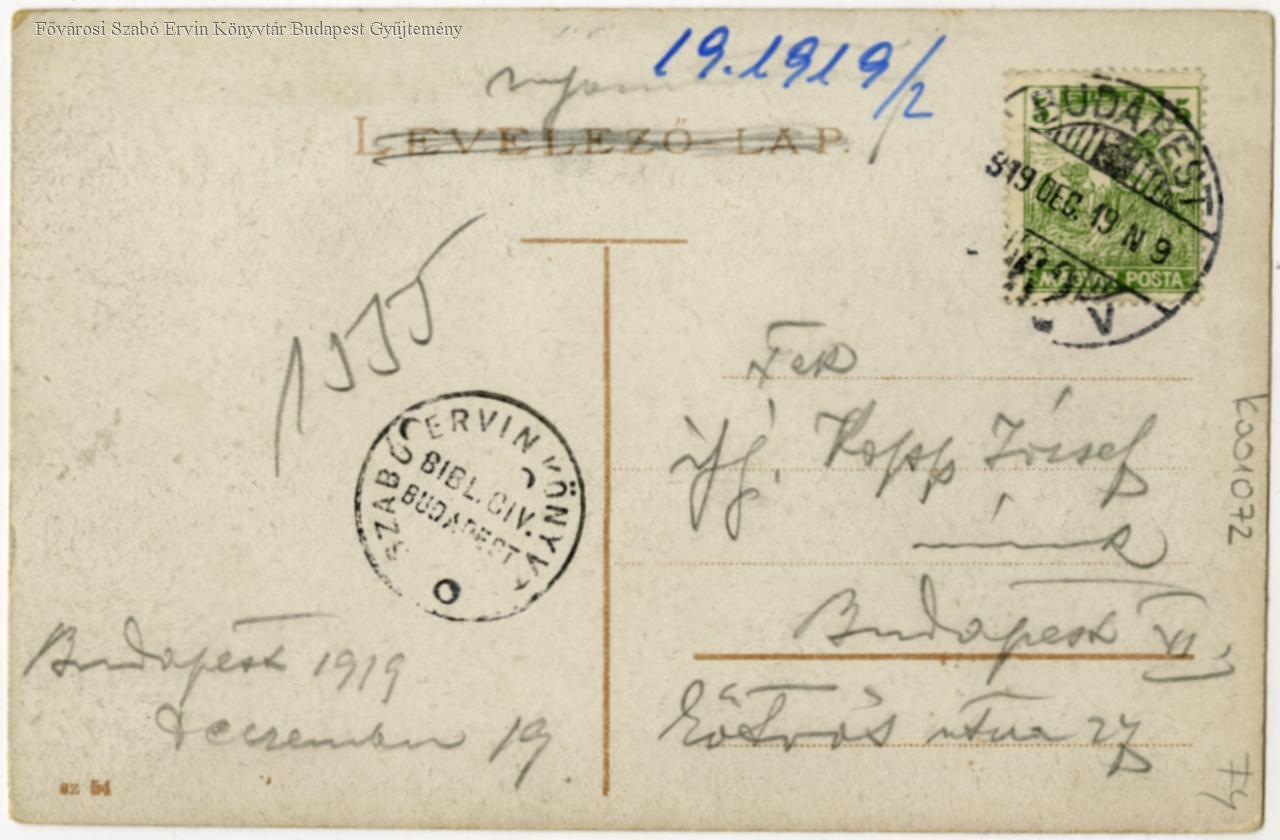 Fővárosi Szabó Ervin Könyvtár Budapest Gyűjtemény
19.1919/2
LEVELEZŐ LAP.
5 5
BUDAPEST
919 DEC. 19 N 9
MAGYAR POSTA
V
SZABÓ ERVIN KÖNYVT
BIBL. CIV.
BUDAPEST
Tek
ifj. Kopp József
úrnak
Budapest VI
Eötvös utca 27
Budapest 1919
Deczember 19.
sz 54
k001072